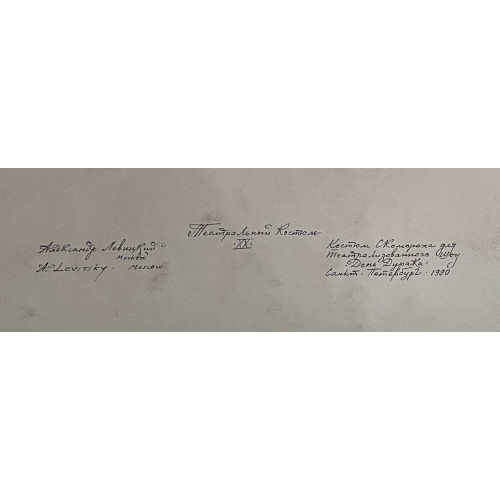 Театральный костюм.
·XX·
Александр Левицкий
Москва
A. Levitsky. Moscow
Костюм Скомороха для
театрализованного шоу
День Дурака.
Санкт. Петербург. 1990